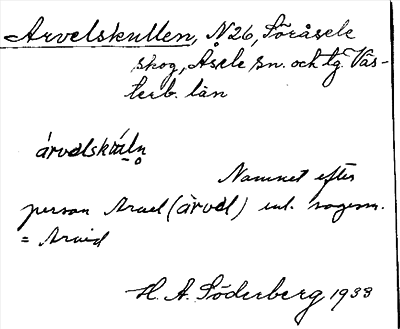 Arvelskullen, N26, Söråsele
skog, Åsele sn. och tg. Väs-
terb. län
árvelskŭ́ḁln̥
Namnet efter
person Arvel (àrvel) enl. sagesm.
= Arvid
H. A. Söderberg 1933